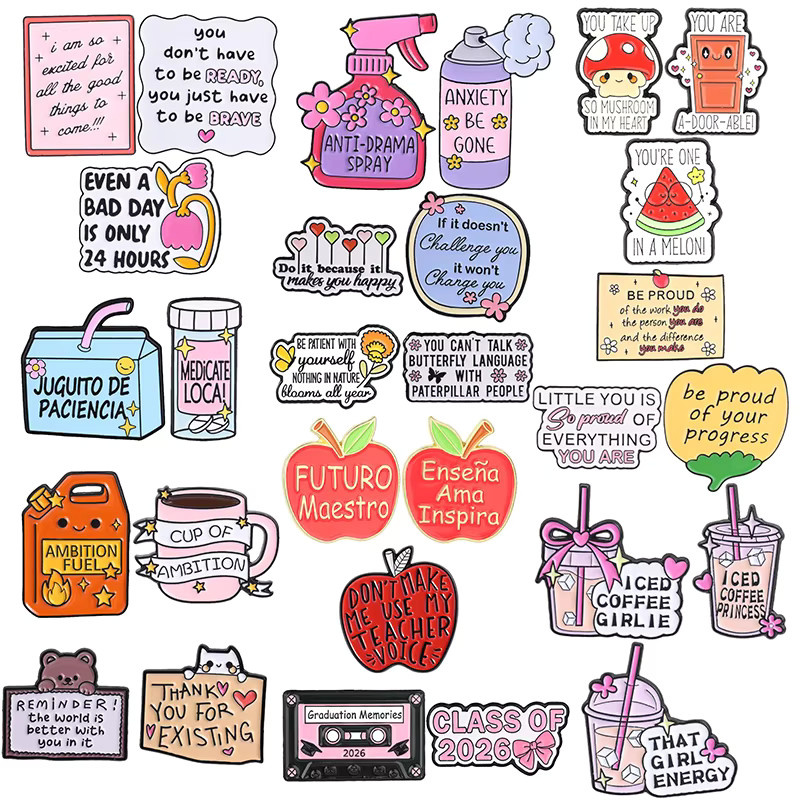 i am so
excited for
all the good
things to
come!!!
you
don't have
to be READY,
you just have
to be BRAVE
ANTI-DRAMA
SPRAY
ANXIETY
BE
GONE
YOU TAKE UP
SO MUSHROOM
IN MY HEART
YOU ARE
A-DOOR-ABLE!
EVEN A
BAD DAY
IS ONLY
24 HOURS
Do it because it
makes you happy
If it doesn't
Challenge you
it won't
Change you
YOU'RE ONE
IN A MELON!
BE PROUD
of the work you do
the person you are
and the difference
you make
JUGUITO DE
PACIENCIA
MEDICATE
LOCA!
BE PATIENT WITH
yourself
NOTHING IN NATURE
blooms all year
YOU CAN'T TALK
BUTTERFLY LANGUAGE
WITH
PATERPILLAR PEOPLE
LITTLE YOU IS
So proud OF
EVERYTHING
YOU ARE
be proud
of your
progress
FUTURO
Maestro
Enseña
Ama
Inspira
AMBITION
FUEL
CUP OF
AMBITION
DON'T MAKE
ME USE MY
TEACHER
VOICE
ICED
COFFEE
GIRLIE
ICED
COFFEE
PRINCESS
REMINDER!
the world is
better with
you in it
THANK
YOU FOR
EXISTING
Graduation Memories
2026
CLASS OF
2026
THAT
GIRL
ENERGY